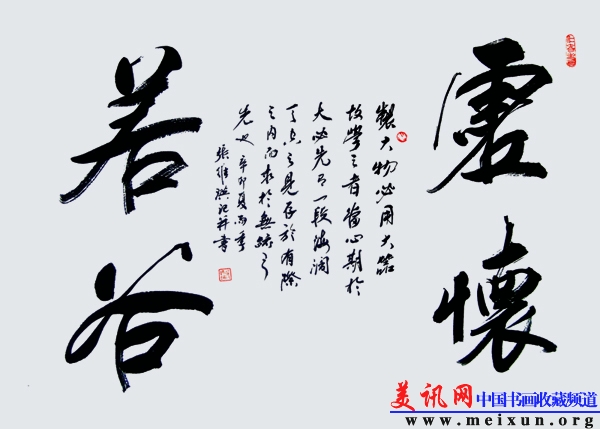 虛懷
若谷
製大物必用大器
故學之者當心期於
大必先有一段海闊
天空之見存於有際
之內而求於無跡之
先也 辛卯夏雨季
張維洪記并書
美讯网中国书画收藏频道
www.meixun.org